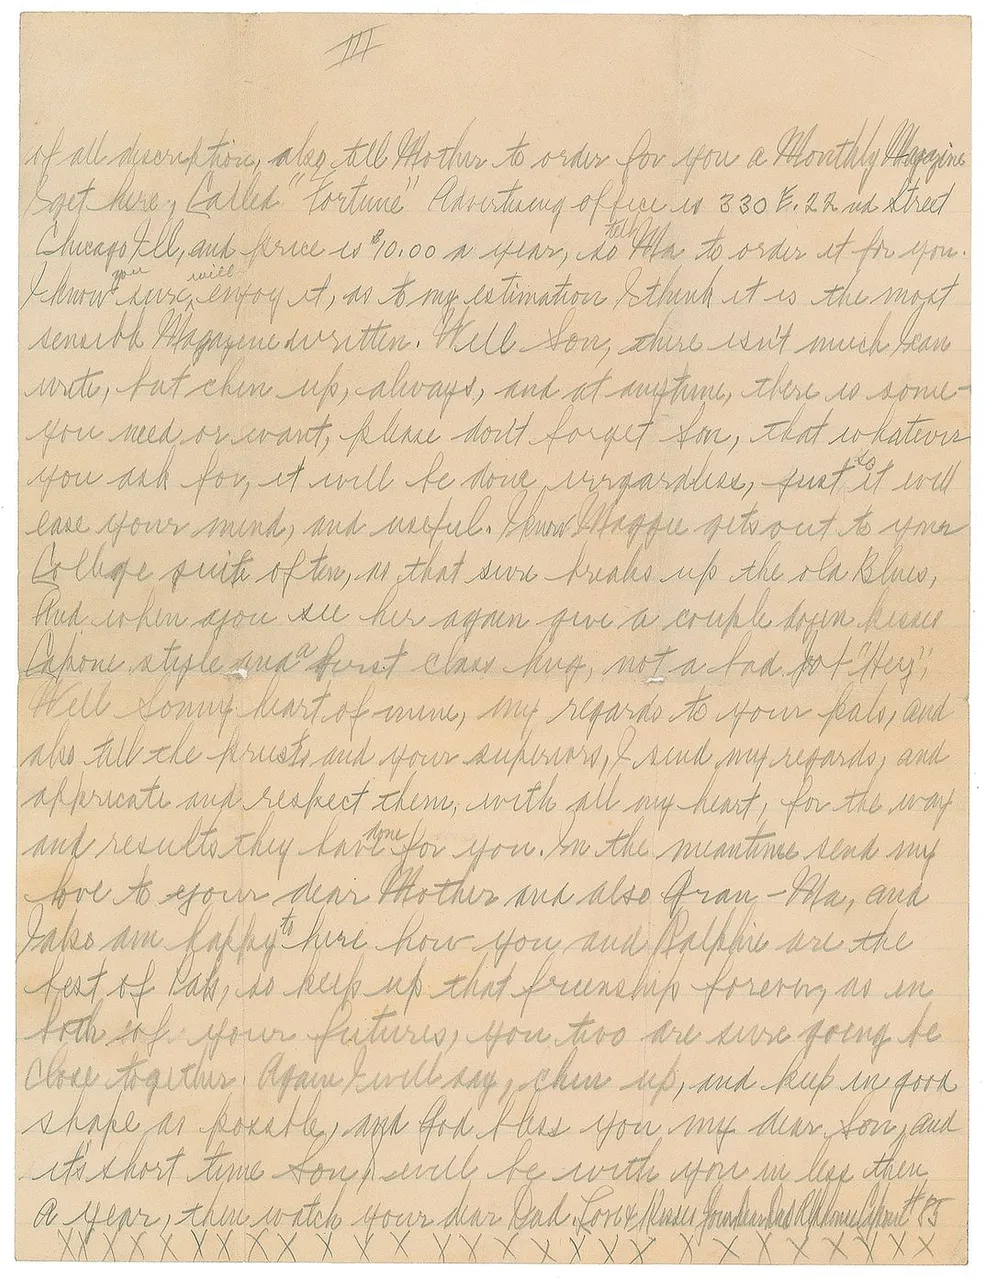 III
of all discription, also tell Mother to order for you a Monthly Magazine
I get here, Called "Fortune" Advertising office is 330 E. 22 nd Street
Chicago Ill, and price is $10.00 a year, so tell Ma to order it for you.
I know you sure, will enjoy it, as to my estimation I think it is the most
sensible Magazine written. Well Son, there isn't much I can
write, but cheer up, always, and at anytime, there is some-
you need or want, please don't forget Son, that whatever
you ask for, it will be done irregardless, just so it will
ease your mind, and useful. I know Maggie gets out to your
College quite often, as that sure breaks up the old Blues,
And when you see her again give a couple dozen kisses
Capone style and a first class hug, not a bad job "Hey",
Well Sonny heart of mine, my regards to your pals, and
also tell the priests and your superiors, I send my regards, and
appricate and respect them, with all my heart, for the way
and results they have done for you. In the meantime send my
love to your dear Mother and also Gran-Ma, and
I also am happy to here how you and Ralphie are the
best of Pals, so keep up that frienship forever, as in
both of your futures, you two are sure going be
close together. Again I will say, cheer up, and keep in good
shape as possble, and God bless you my dear Son, and
it's short time Son, will be with you in less then
a year, then watch your dear Dad. Love & Kisses Your Dear Dad Alphonse Capone # 85